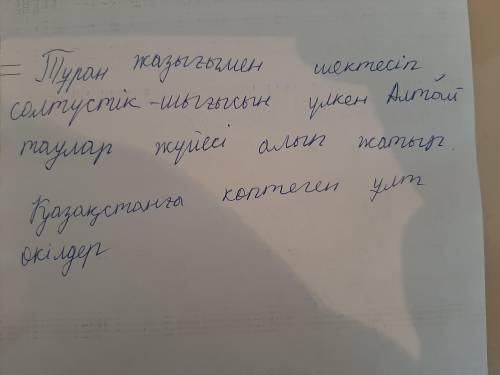 = Тұран жазығымен шектесіп
солтүстік-шығысын үлкен Алтай
таулар жүйесі алып жатыр.
Қазақстанға көптеген ұлт
өкілдер